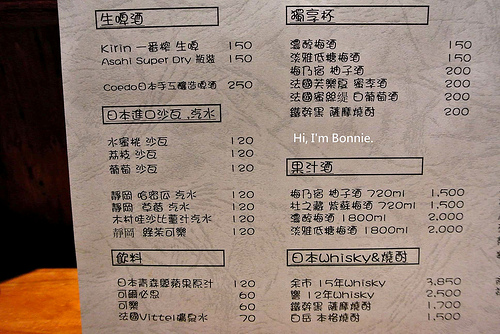 生啤酒
Kirin 一番榨 生啤 150
Asahi Super Dry 瓶裝 150
Coedo日本手工釀造啤酒 250
日本進口沙瓦.汽水
水蜜桃 沙瓦 120
荔枝 沙瓦 120
葡萄 沙瓦 120
靜岡 哈密瓜 汽水 120
靜岡 草莓 汽水 120
木村哇沙比薑汁汽水 120
靜岡 綠茶可樂 120
飲料
日本青森縣蘋果原汁 120
可爾必思 60
可樂 60
法國Vittel礦泉水 70
獨享杯
濃醇梅酒 150
淡雅低糖梅酒 150
梅乃宿 柚子酒 200
法國芙樂夏 蜜李酒 200
法國蜜絲緹 白葡萄酒 200
鐵幹黑 薩摩燒酎 200
Hi, I'm Bonnie.
果汁酒
梅乃宿 柚子酒 720ml 1,500
杜之藏 紫蘇梅酒 720ml 1,500
濃醇梅酒 1800ml 2,000
淡雅低糖梅酒 1800ml 2,000
日本Whisky&燒酎
余市 15年Whisky 3,850
響 12年Whisky 2,500
鐵幹黑 薩摩燒酎 1,700
白岳 本格燒酎 1,500